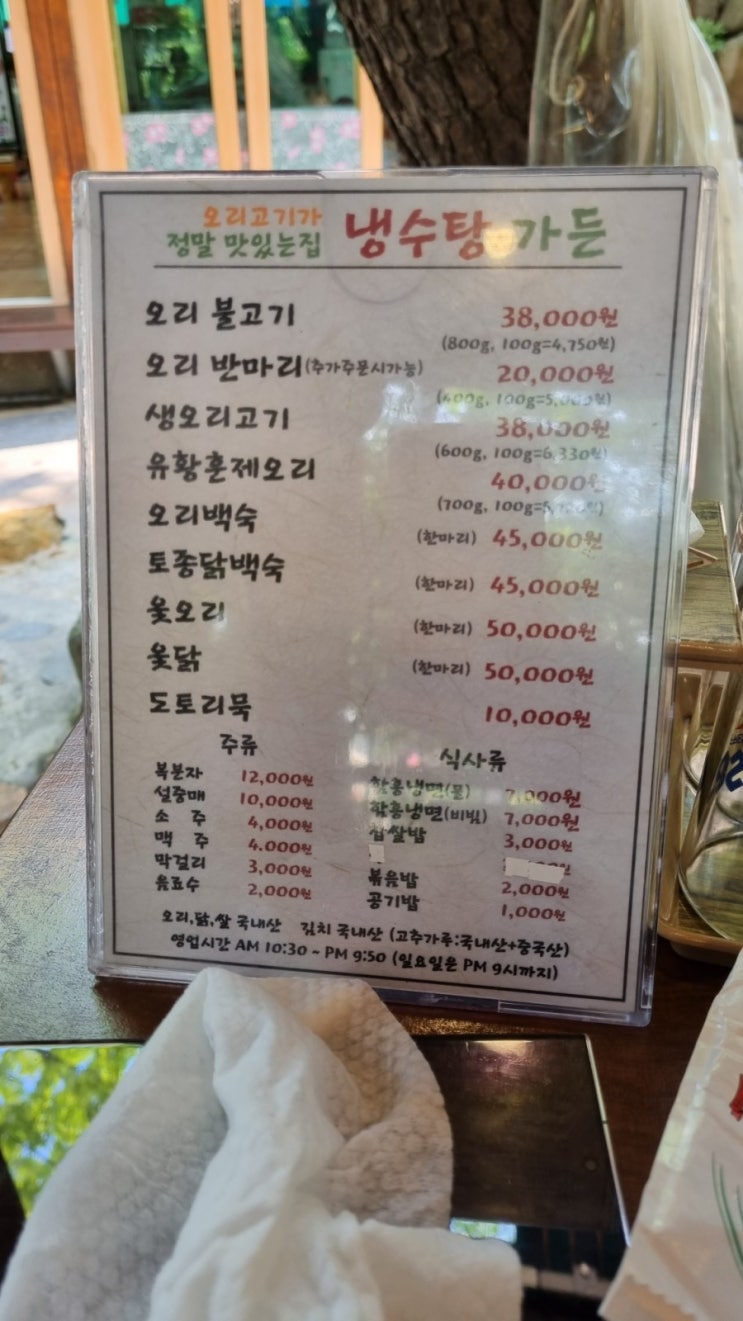 오리고기가
정말 맛있는집 냉수탕 가든
오리 불고기 38,000원
(800g, 100g=4,750원)
오리 반마리(추가주문시가능) 20,000원
(400g, 100g=5,000원)
생오리고기 38,000원
(600g, 100g=6,330원)
유황훈제오리 40,000원
(700g, 100g=
오리백숙 (한마리) 45,000원
토종닭백숙 (한마리) 45,000원
옻오리 (한마리) 50,000원
옻닭 (한마리) 50,000원
도토리묵 10,000원
주류
복분자 12,000원
설중매 10,000원
소 주 4,000원
맥 주 4.000원
막걸리 3,000원
음료수 2,000원
식사류
함흥냉면(물) 7,000원
함흥냉면(비빔) 7,000원
찹쌀밥 3,000원
볶음밥 2,000원
공기밥 1,000원
오리,닭,쌀 국내산 김치 국내산 (고추가루:국내산+중국산)
영업시간 AM 10:30 ~ PM 9:50 (일요일은 PM 9시까지)